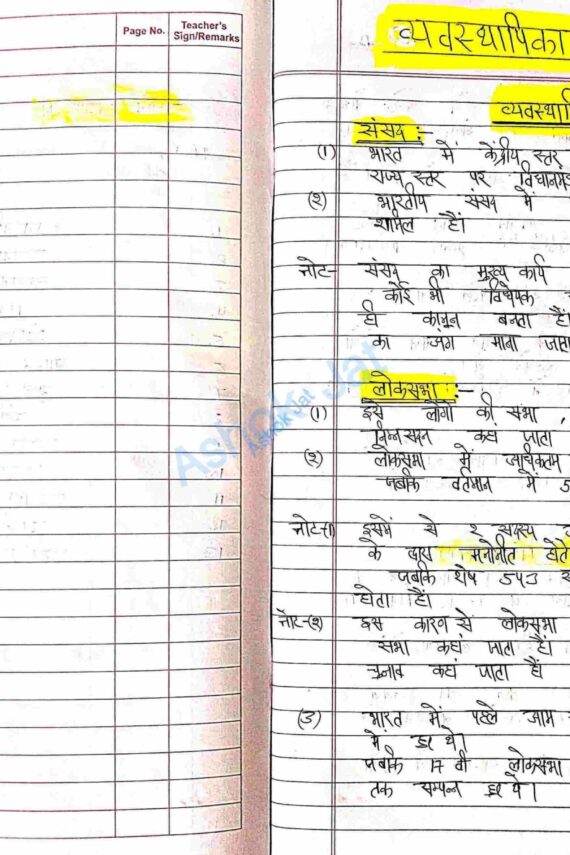 Page No.
Teacher's
Sign/Remarks
व्यवस्थापिका
संसद :-
(1) भारत में केंद्रीय स्तर
राज्य स्तर पर
(2) भारतीय संसद में
शामिल हैं।
नोट- संसद का मुख्य कार्य
कोई भी विधेयक
ही कानून बनता हैं।
का अंग माना जाता
लोकसभा :-
(1) इसे लोगों की सभा ,
निम्न सदन कहा जाता
(2) लोकसभा में अधिकतम
जबकि वर्तमान में 5
नोट-(1) इसमें से 2 सदस्य
के द्वारा मनोनीत होते
जबकि शेष 543
होता हैं।
नोट-(2) इस कारण से लोकसभा
सभा कहां जाता हैं।
चुनाव कहां जाता हैं
(3) भारत में पहले आम
में हुए थे।
जबकि 17 वी लोकसभा
तक सम्पन हुए थे।
Ashok Jat